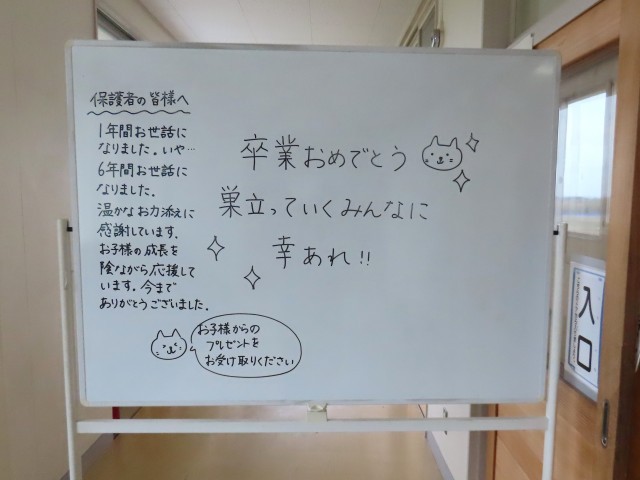 保護者の皆様へ
1年間お世話に
なりました。いや…
6年間お世話に
なりました。
温かなお力添えに
感謝しています。
お子様の成長を
陰ながら応援して
います。今まで
ありがとうございました。
お子様からの
プレゼントを
お受け取りください
卒業おめでとう
巣立っていくみんなに
幸あれ!!
入口